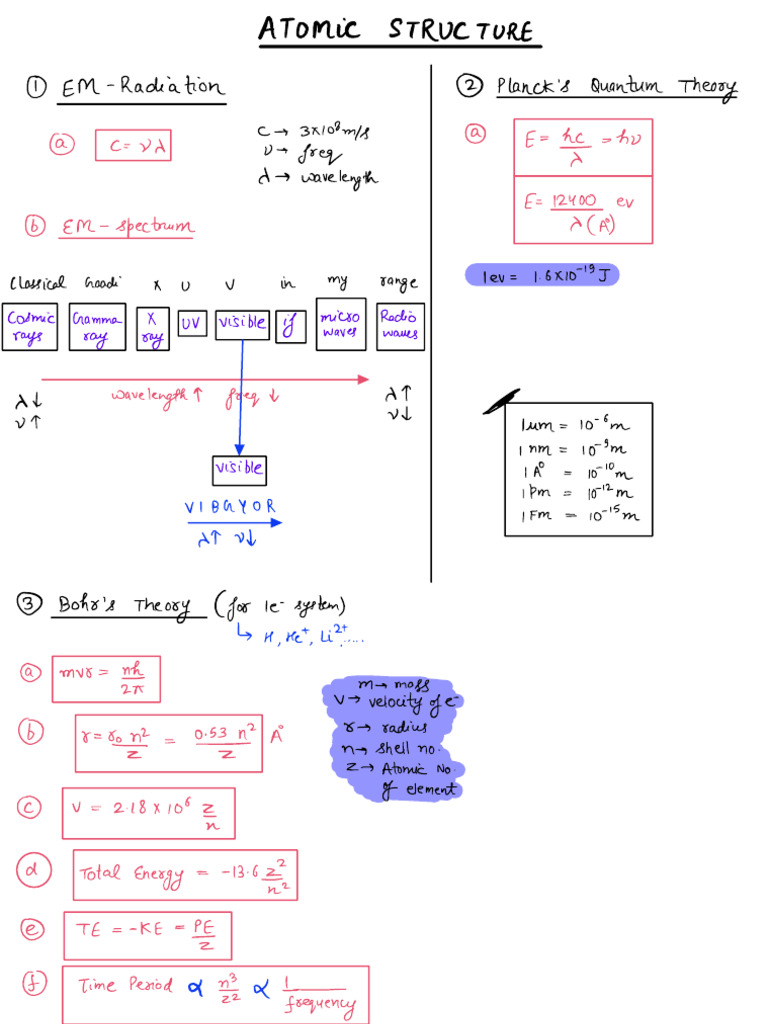 ATOMIC STRUCTURE
① EM-Radiation
ⓐ C = νλ
C → 3×10⁸ m/s
ν → freq
λ → wavelength
ⓑ EM-spectrum
Classical Gaadi X U V in my range
Cosmic rays
Gramma ray
X ray
UV
visible
if
micro waves
Radio waves
wavelength ↑ freq ↓
λ↓
ν↑
λ↑
ν↓
visible
VIBGYOR
λ↑ ν↓
② Planck's Quantum Theory
ⓐ E = hc/λ = hν
E = 12400/λ(A⁰) ev
1ev = 1.6×10⁻¹⁹ J
1um = 10⁻⁶ m
1nm = 10⁻⁹ m
1A⁰ = 10⁻¹⁰ m
1Pm = 10⁻¹² m
1Fm = 10⁻¹⁵ m
③ Bohr's Theory (for 1e⁻ system)
↳ H, He⁺, Li²⁺,.....
ⓐ mvr = nh/2π
ⓑ r = r₀ n²/Z = 0.53 n²/Z A⁰
ⓒ V = 2.18×10⁶ Z/n
ⓓ Total Energy = -13.6 Z²/n²
ⓔ TE = -KE = PE/Z
ⓕ Time Period ∝ n³/Z² ∝ 1/frequency
m → mass
V → velocity of e⁻
r → radius
n → shell no.
Z → Atomic No.
of element